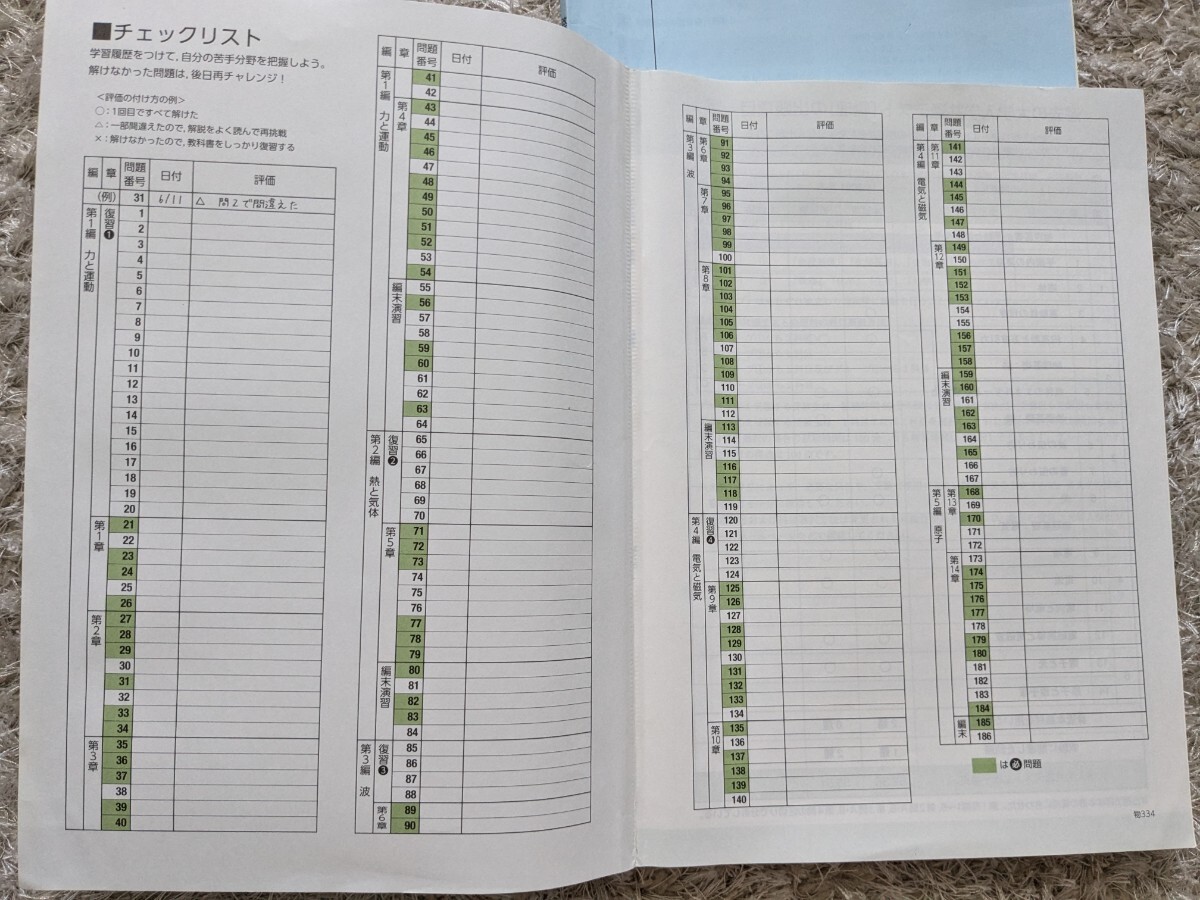 ■チェックリスト
学習履歴をつけて，自分の苦手分野を把握しよう。
解けなかった問題は，後日再チャレンジ！
＜評価の付け方の例＞
○：1回目ですべて解けた
△：一部間違えたので，解説をよく読んで再挑戦
×：解けなかったので，教科書をしっかり復習する
編 章 問題番号 日付 評価
(例) 31 6/11 △ 問2で間違えた
第1編 力と運動
復習❶
1
2
3
4
5
6
7
8
9
10
11
12
13
14
15
16
17
18
19
20
第1章
21
22
23
24
25
26
第2章
27
28
29
30
31
32
33
34
第3章
35
36
37
38
39
40
編 章 問題番号 日付 評価
第1編 力と運動
41
42
第4章
43
44
45
46
47
48
49
50
51
52
53
54
編末演習
55
56
57
58
59
60
61
62
63
64
第2編 熱と気体
復習❷
65
66
67
68
69
70
第5章
71
72
73
74
75
76
77
78
79
編末演習
80
81
82
83
84
第3編 波
復習❸
85
86
87
88
第6章
89
90
編 章 問題番号 日付 評価
第3編 波
第6章
91
92
93
94
第7章
95
96
97
98
99
100
第8章
101
102
103
104
105
106
107
108
109
110
111
112
編末演習
113
114
115
116
117
118
119
第4編 電気と磁気
復習❹
120
121
122
123
124
第9章
125
126
127
128
129
130
131
132
133
134
第10章
135
136
137
138
139
140
編 章 問題番号 日付 評価
第4編 電気と磁気
第11章
141
142
143
144
145
146
147
148
第12章
149
150
151
152
153
154
155
156
157
158
編末演習
159
160
161
162
163
164
165
166
167
第5編 原子
第13章
168
169
170
171
172
第14章
173
174
175
176
177
178
179
180
181
182
183
184
編末
185
186
は必問題
物334